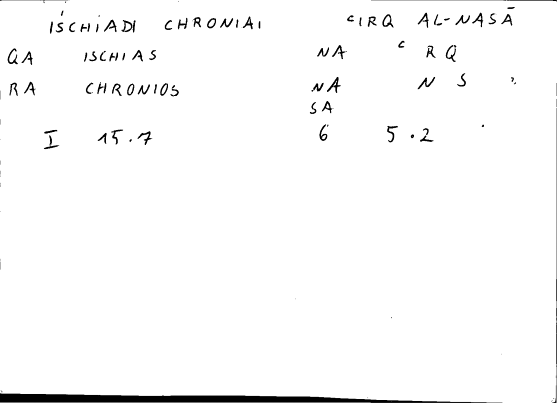 ISCHIADI CHRONIAI ʿIRQ AL-NASĀ
QA ISCHIAS NA ʿ R Q
RA CHRONIOS NA N S ʾ
SA
I 15.7 6 5.2